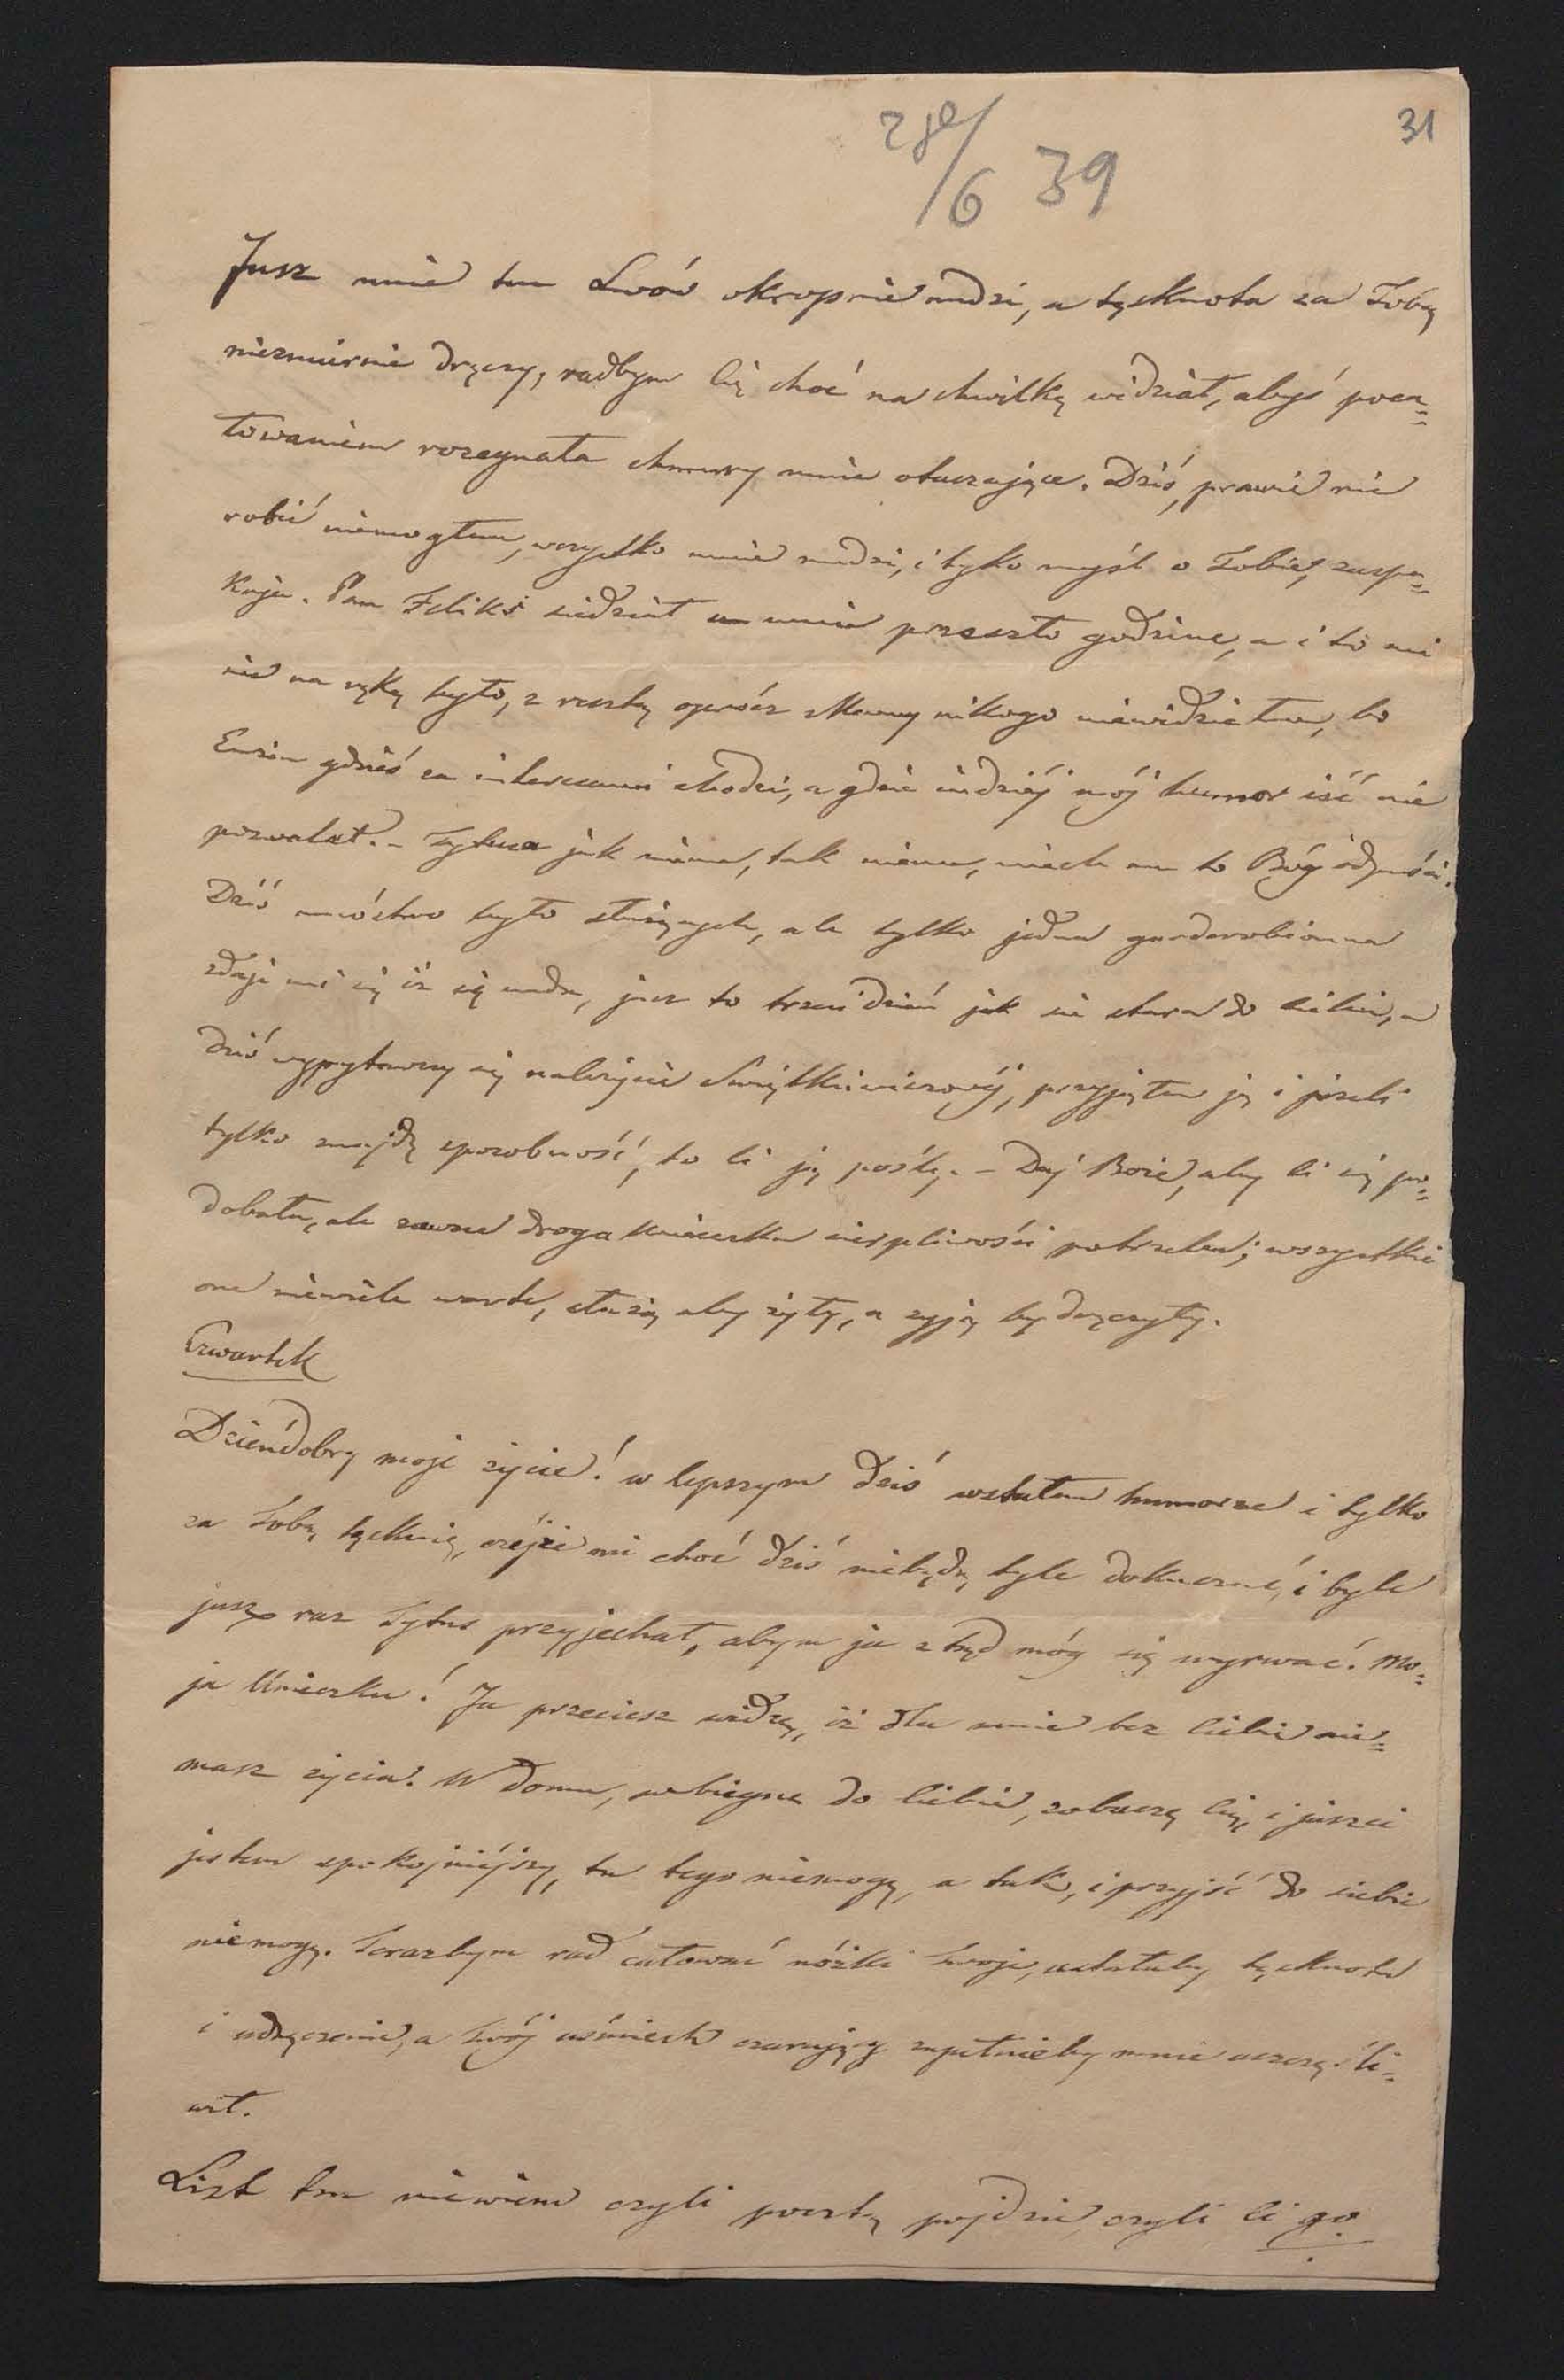 31
28/6 39
Jusz mnie tu Lwów okropnie nudzi, a tęsknota za Tobą
niezmiernie dręczy, radbym Cię choć na chwilkę widział, abyś poca=
łowaniem rozegnała chmury mnie otaczające. Dziś, prawie nic
robić niemogłem, wszystko mnie nudzi, i tyko myśl o Tobie, zaspa=
kaja. Pan Feliks siedział u mnie przeszło godzinę, a i to mi
nie na rękę było, z resztą oprócz Mamy nikogo niewidziałem, bo
gdzieś za interesami chodzi, a gdzie indziéj mój humor iść nie
pozwalał. – Tytusa jak niema, tak niema, niech mu to Bóg odpuści.
Dziś mnóstwo było służących, ale tylko jedna garderobianna
zdaje mi się iż się uda, jusz to trzeci dzień jak się stara do Ciebie, a
dziś wypytawszy się należycie, przyjąłem ją i jeżeli
tylko znajdę sposobność, to Ci ją poślę. – Daj Boże, aby Ci się po=
dobała, ale zawsze droga Unieczku cierpliwości potrzeba; wszystkie
one niewiele warte, służą aby żyły, a żyją by dręczyły.
Czwartek
Dzieńdobry moje życie! w lepszym dziś wstałem humorze i tylko
za Tobą tęsknię, czéjże mi choć dziś niebędą tyle dokuczać, i byle
jusz raz Tytus przyjechał, abym ja ztąd móg się wyrwać. Mo=
ja Unieczku! Ja przeciesz widzę, iż dla mnie bez Ciebie nie=
masz życia. W domu, wbiegnę do Ciebie, zobaczę Cię, i juszci
jestem spokojniéjszy, tu tego niemogę, a tak, i przyjść do siebie
niemogę. Terazbym rad całować nóżki Twoje, ustałaby tęsknota
i udręczenie, a Twój uśmiech czarujący zupełnieby mnie uszczęśli=
wił.
List ten niewiem czyli pocztą pojdzie, czyli Ci go